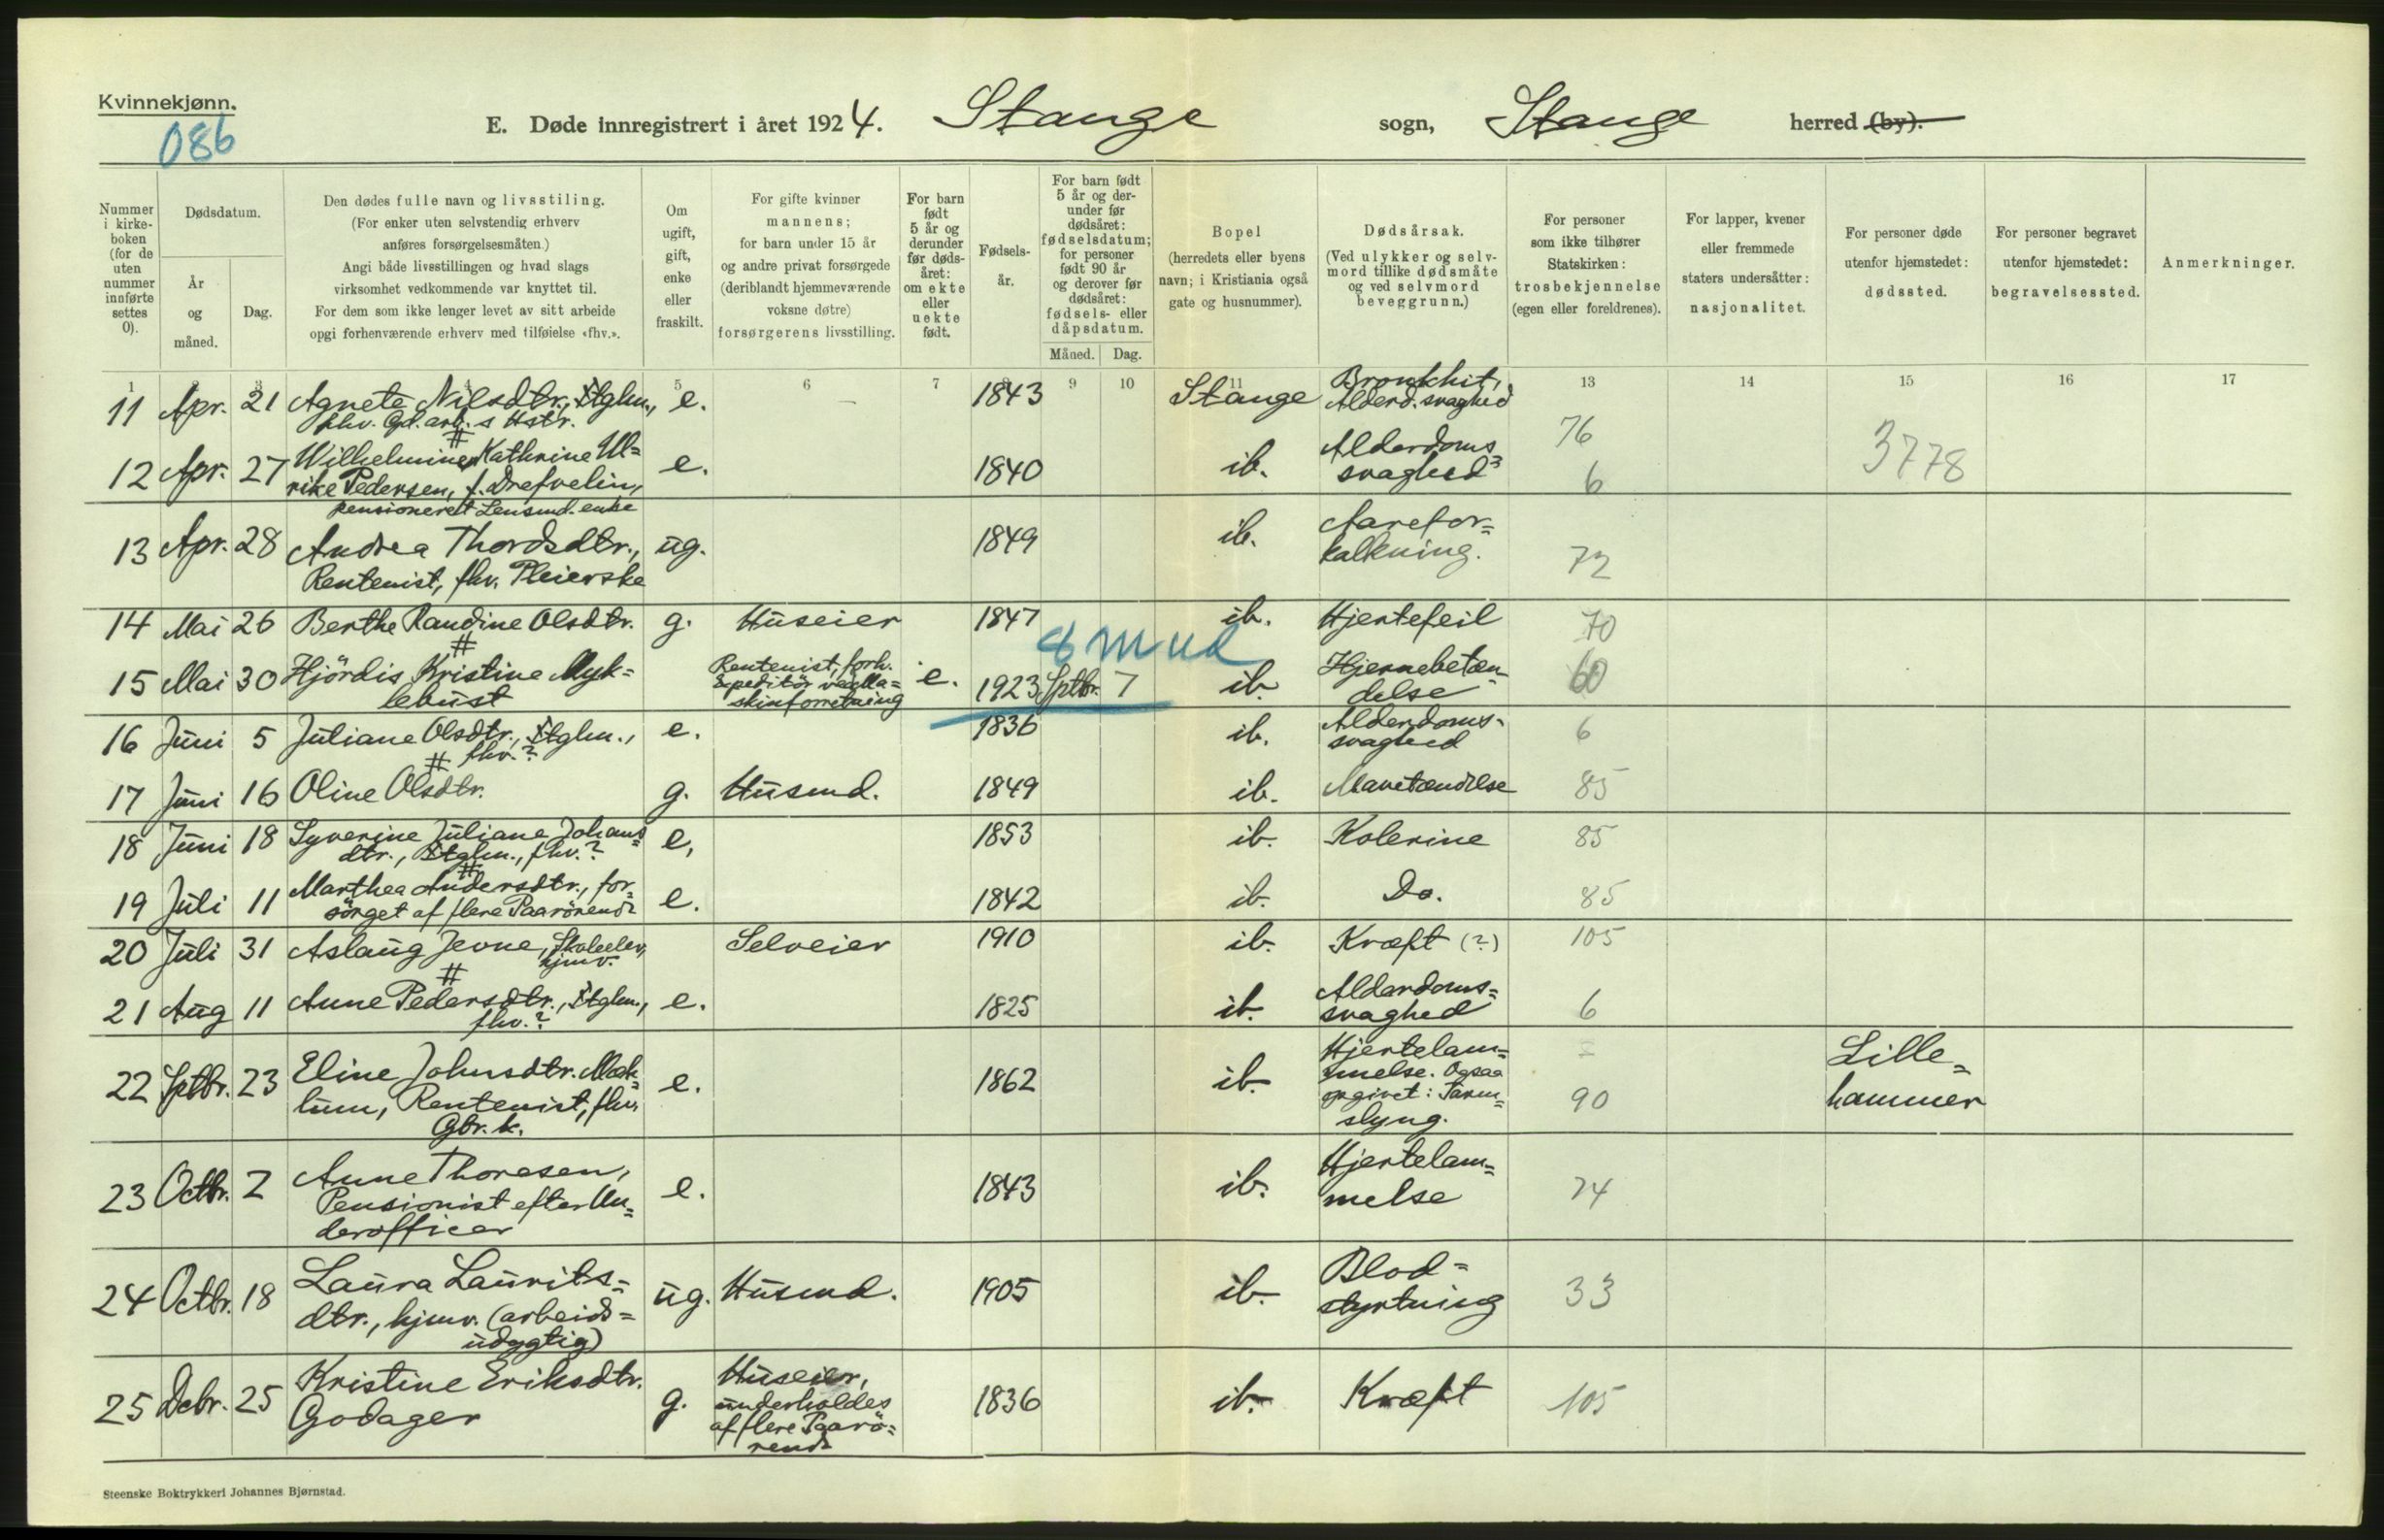 Kvinnekjønn.
086
E. Døde innregistrert i året 1924. Stange sogn, Stange herred (by).
Nummer i kirke-boken (for de uten nummer innførte settes 0).
Dødsdatum.
År og måned.
Dag.
Den dødes fulle navn og livsstilling.
(For enker uten selvstendig erhverv
anføres forsørgelsesmåten.)
Angi både livsstillingen og hvad slags
virksomhet vedkommende var knyttet til.
For dem som ikke lenger levet av sitt arbeide
opgi forhenværende erhverv med tilføielse «fhv.».
Om ugift, gift, enke eller fraskilt.
For gifte kvinner
mannens;
for barn under 15 år
og andre privat forsørgede
(deriblandt hjemmeværende
voksne døtre)
forsørgerens livsstilling.
For barn født 5 år og derunder før døds-året: om ekte eller uekte født.
Fødsels-år.
For barn født 5 år og der-under før dødsåret: fødselsdatum; for personer født 90 år og derover før dødsåret: fødsels- eller dåpsdatum.
Måned. Dag.
Bopel
(herredets eller byens
navn; i Kristiania også
gate og husnummer).
Dødsårsak.
(Ved ulykker og selv-
mord tillike dødsmåte
og ved selvmord
beveggrunn.)
For personer
som ikke tilhører
Statskirken:
trosbekjennelse
(egen eller foreldrenes).
For lapper, kvener
eller fremmede
staters undersåtter:
nasjonalitet.
For personer døde
utenfor hjemstedet:
dødssted.
For personer begravet
utenfor hjemstedet:
begravelsessted.
Anmerkninger.
1 3 5 6 7 9 10 11 13 14 15 16 17
11 Apr. 21 Agnete Nilsdtr., e. — 1843 Stange Bronkhit, Alderd. svaghed
fhv. Gd. arb. s Hstr. 76
#
12 Apr. 27 Wilhelmine Kathrine Ul= e. 1840 ib. Alderdoms 3778
rike Pedersen, f. Drefvelin, svaghed 6
pensioneret Lensmd. enke
13 Apr. 28 Andrea Thordsdtr., ug. 1849 ib. Aarefor=
Rentenist, fhv. Pleierske kalkning. 72
14 Mai 26 Berthe Randine Olsdtr. g. Huseier 1847 ib. Hjertefeil 70
#
8 mnd
15 Mai 30 Hjördis Kristine Myk= Rentenist, forh. e. 1923 Sptbr. 7 ib. Hjernebetæn= 60
lebust delse
16 Juni 5 Juliane Olsdtr., e. 1836 ib. Alderdoms- 6
# fhv.? svaghed
17 Juni 16 Oline Olsdtr. g. Husmd. 1849 ib. Mavetændelse 85
18 Juni 18 Syverine Juliane Johans e, 1853 ib. Kolerine 85
dtr., fhv.?
#
19 Juli 11 Marthea Andersdtr., for= e. 1842 ib. Do. 85
sörget af flere Paarörende
20 Juli 31 Aslaug Jevne, Skoleelev, Selveier 1910 ib. Kræft (?) 105
hjmv.
#
21 Aug 11 Anne Pedersdtr., e. 1825 ib. Alderdoms= 6
fhv.? svaghed
22 Sptbr. 23 Eline Johnsdtr. e. 1862 ib. Hjertelam= Lille=
lum, Rentenist, fhv. melse. Ogsaa 90 hammer
Gbr. k. opgivet: Tarm= slyng.
23 Octbr. 2 Anne Thoresen, e. 1843 ib. Hjertelam= 74
Pensionist efter Un= melse
derofficer
24 Octbr. 18 Laura Laurits= ug. Husmd. 1905 ib. Blod= 33
dtr., hjmv. (arbeids= styrtning
udygtig)
25 Dcbr. 25 Kristine Eriksdtr. g. Huseier, 1836 ib. Kræft 105
Godager underholdes
af flere Paarö=
rende
Steenske Boktrykkeri Johannes Bjørnstad.